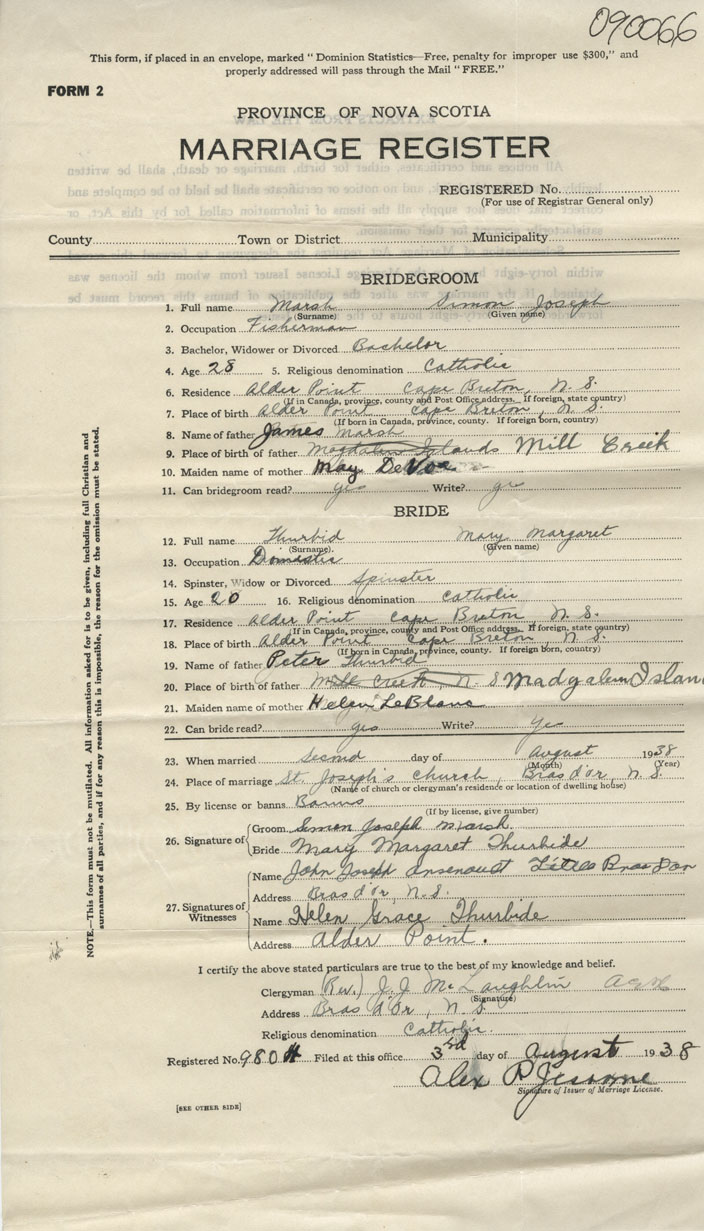 090066
This form, if placed in an envelope, marked "Dominion Statistics—Free, penalty for improper use $300," and
properly addressed will pass through the Mail "FREE."
FORM 2
PROVINCE OF NOVA SCOTIA
MARRIAGE REGISTER
REGISTERED No.
(For use of Registrar General only)
County Town or District Municipality
BRIDEGROOM
1. Full name Marsh Simon Joseph
(Surname) (Given name)
2. Occupation Fisherman
3. Bachelor, Widower or Divorced Bachelor
4. Age 28 5. Religious denomination Catholic
6. Residence Alder Point Cape Breton, N. S.
(If in Canada, province, county and Post Office address. If foreign, state country)
7. Place of birth Alder Point Cape Breton, N. S.
(If born in Canada, province, county. If foreign born, country)
8. Name of father James Marsh
9. Place of birth of father Magdalen Islands Mill Creek
10. Maiden name of mother May DeVoe
11. Can bridegroom read? yes Write? yes
BRIDE
12. Full name Thurbid Mary Margaret
(Surname). (Given name)
13. Occupation Domestic
14. Spinster, Widow or Divorced Spinster
15. Age 20 16. Religious denomination Catholic
17. Residence Alder Point Cape Breton N. S.
(If in Canada, province, county and Post Office address. If foreign, state country)
18. Place of birth Alder Point Cape Breton N. S.
(If born in Canada, province, county. If foreign born, country)
19. Name of father Peter Thurbid
20. Place of birth of father Mill Creek, N. S Madgalen Islan
21. Maiden name of mother Helen LeBlanc
22. Can bride read? yes Write? Yes
23. When married Second day of August 1938
(Month) (Year)
24. Place of marriage St. Joseph's Church, Bras d'or, N. S.
(Name of church or clergyman's residence or location of dwelling house)
25. By license or banns Banns
(If by license, give number)
26. Signature of
Groom Simon Joseph Marsh.
Bride Mary Margaret Thurbide
27. Signatures of Witnesses
Name John Joseph Little Bras Dor
Address Bras d'or, N.S.
Name Helen Grace Thurbide
Address Alder Point.
I certify the above stated particulars are true to the best of my knowledge and belief.
Clergyman (Rev.) J. J. McLaughlin
(Signature)
Address Bras d'Or, N. S
Religious denomination Catholic.
Registered No. 980 Filed at this office 3rd day of August 1938
Alex P
Signature of Issuer of Marriage License.
[SEE OTHER SIDE]
NOTE.—This form must not be mutilated. All information asked for is to be given, including full Christian and
surnames of all parties, and if for any reason this is impossible, the reason for the omission must be stated.